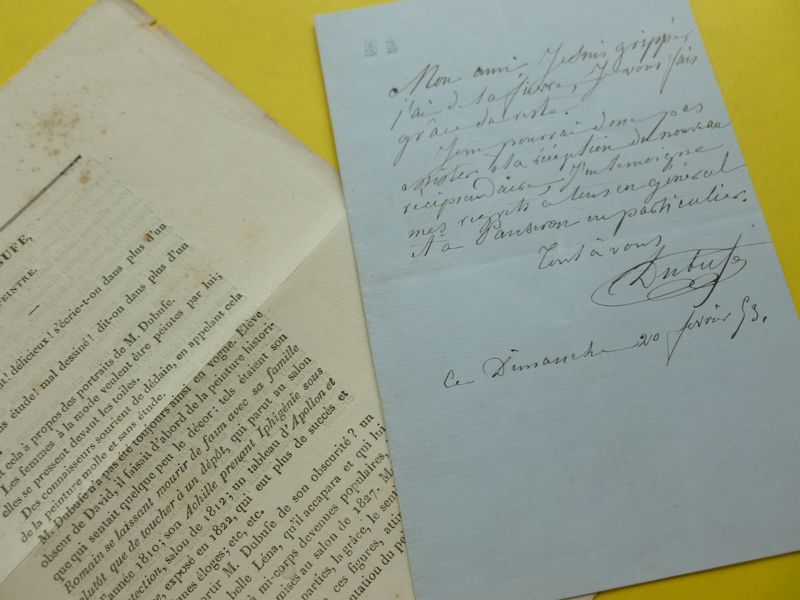 BUFE,
PEINTRE.
délicieux! s'écrie-t-on dans plus d'un
étude! mal dessiné! dit-on dans plus d'un
cela à propos des portraits de M. Dubufe.
Les femmes à la mode veulent être peintes par lui;
elles se pressent devant les toiles.
Des connaisseurs sourient de dédain, en appelant cela
de la peinture molle et sans étude.
M. Dubufe n'a pas été toujours ainsi en vogue. Elève
obscur de David, il faisait d'abord de la peinture histori-
que qui sentait quelque peu le décor: tels étaient son
Romain se laissant mourir de faim avec sa famille
plutôt que de toucher à un dépôt, qui parut au salon
l'année 1810; son Achille prenant Iphigénie sous
protection, salon de 1812; un tableau d'Apollon et
exposé en 1822, qui eut plus de succès et
éloges; etc, etc.
sortir M. Dubufe de son obscurité? un
belle Léna, qu'il accapara et qui lui
mi-corps devenues populaires,
salon de 1827.
parties, la grâce, le
ces figures,
Mon ami, Je suis grippé,
j'ai de la fièvre, Je vous fais
grâce du reste.
Je ne pourrai donc pas
assister à la réception du nouveau
récipiendaire. J'en temoigne
mes regrets à tous en général
et à Panseron en particulier.
Tout à vous
Dubufe
ce Dimanche 20 fevrier 53.